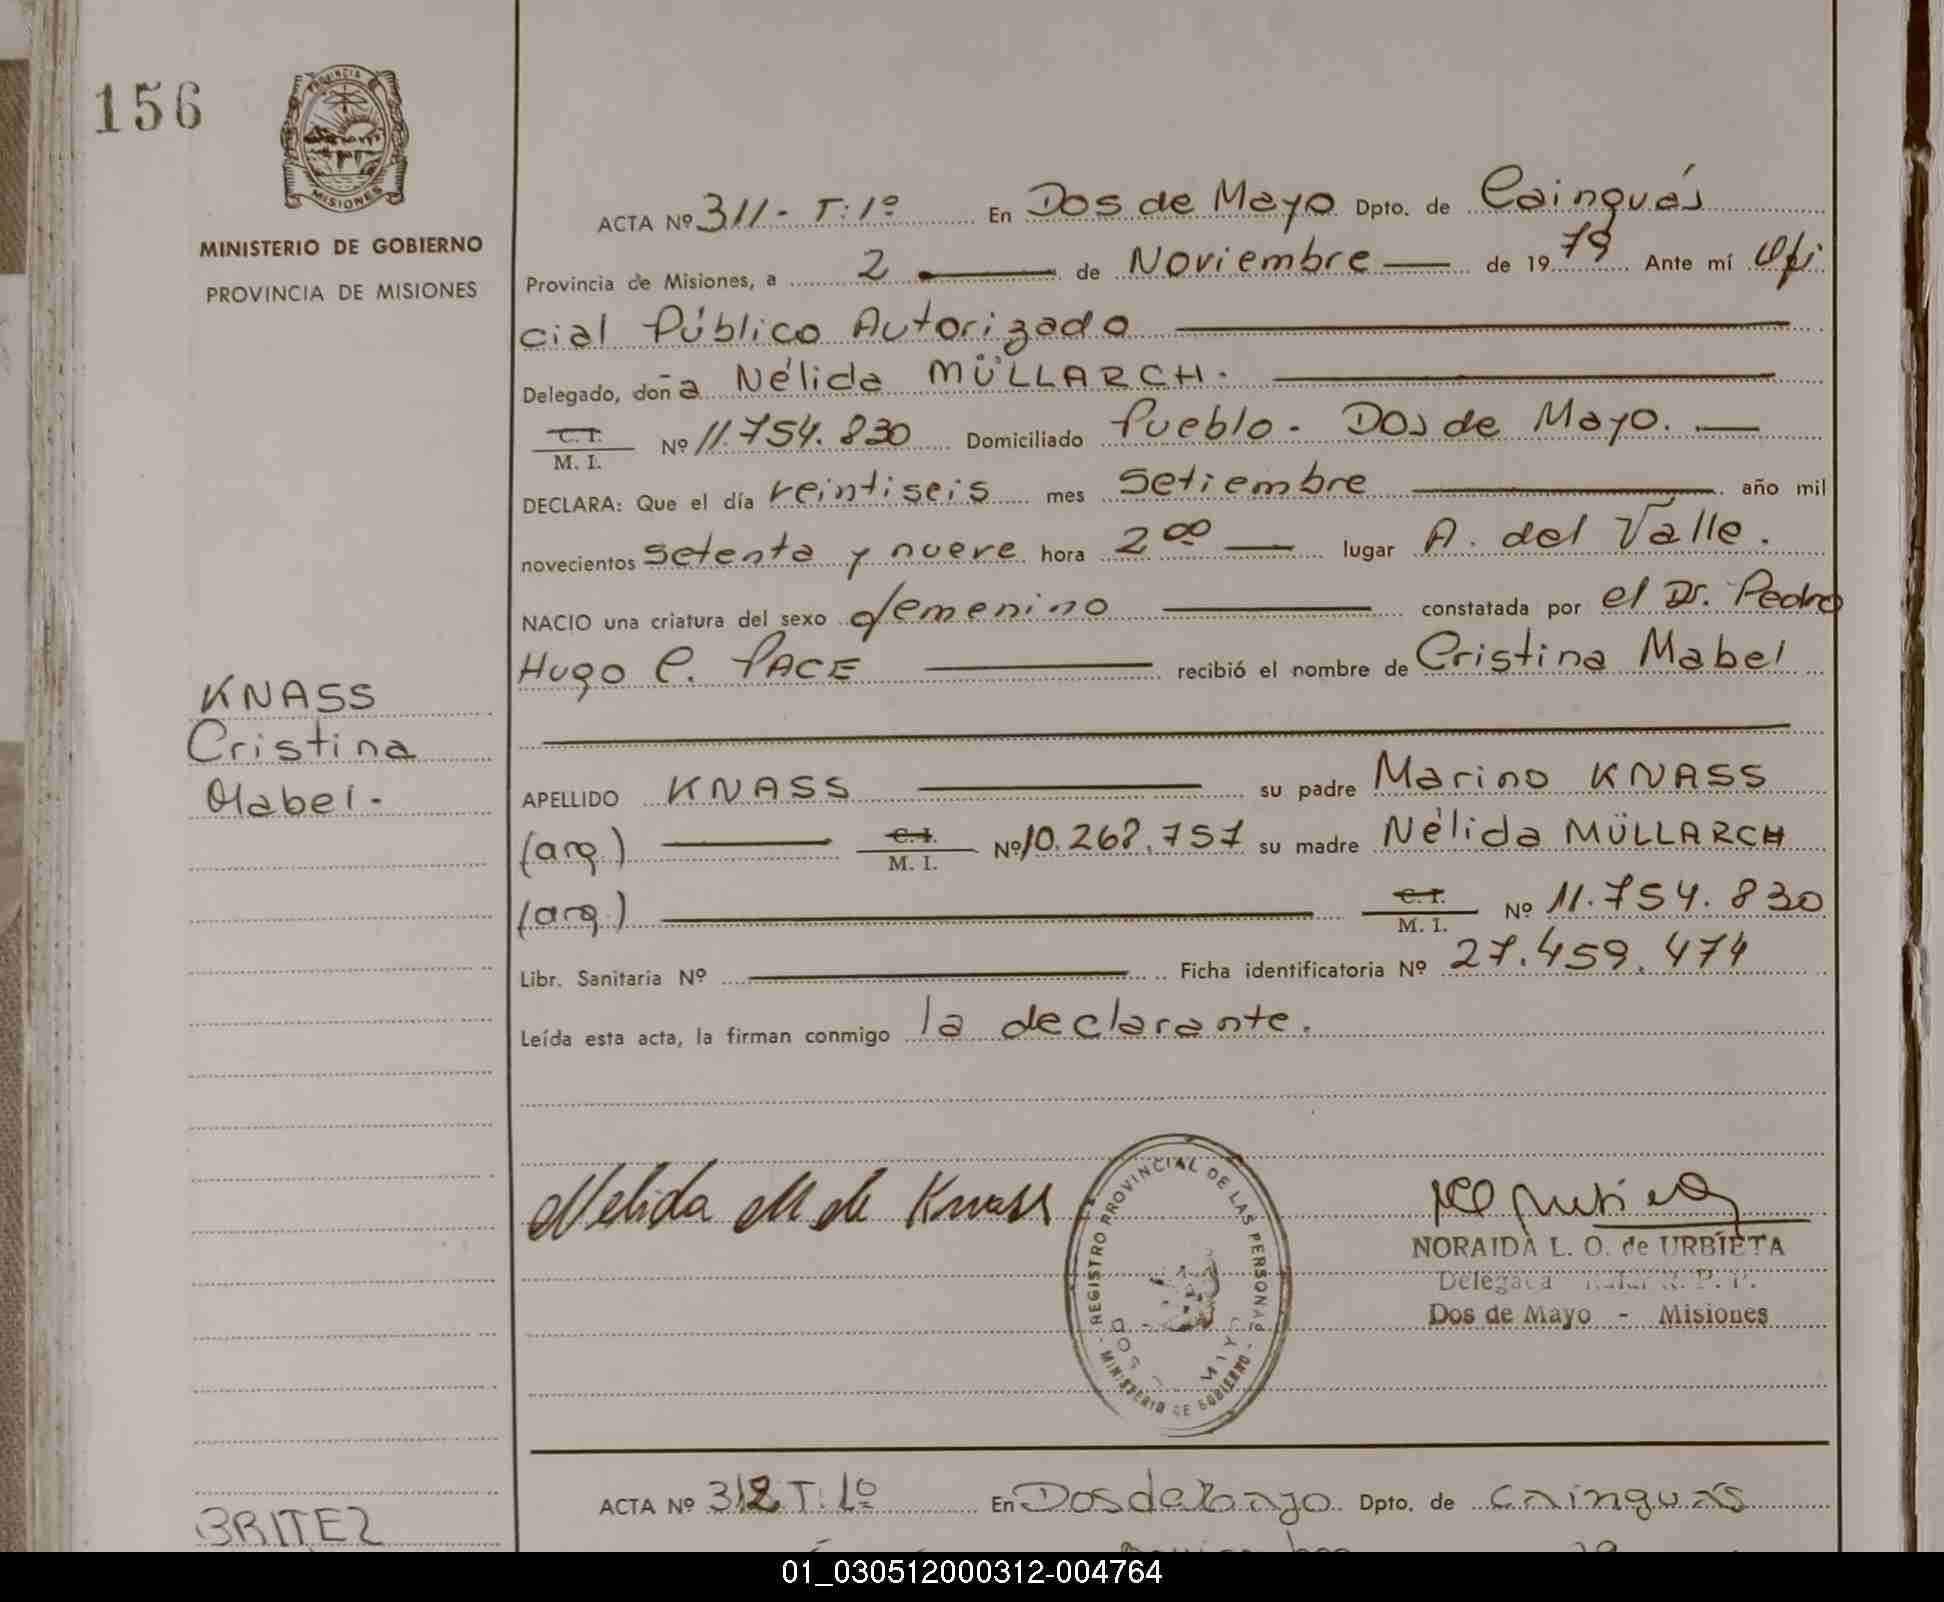 156
PROVINCIA
MISIONES
MINISTERIO DE GOBIERNO
PROVINCIA DE MISIONES
ACTA Nº 311 - T: 1º En Dos de Mayo Dpto. de Cainguás
Provincia de Misiones, a 2 de Noviembre de 1979 Ante mí Ofi
cial Público Autorizado
Delegado, doña Nélida MÜLLARCH.
C. I.
M. I. Nº 11.754.830 Domiciliado Pueblo. Dos de Mayo.
DECLARA: Que el día veintiseis mes Setiembre año mil
novecientos setenta y nueve hora 2 00 lugar A. del Valle.
NACIO una criatura del sexo femenino constatada por el Dr. Pedro
Hugo C. PACE recibió el nombre de Cristina Mabel
KNASS
Cristina
Mabel.-
APELLIDO KNASS su padre Marino KNASS
(arg.) C. I. M. I. Nº 10.268.757 su madre Nélida MÜLLARCH
(arg.) C. I. M. I. Nº 11.754.830
Libr. Sanitaria Nº Ficha identificatoria Nº 27.459.474
Leída esta acta, la firman conmigo la declarante.
Nelida M de Knass
REGISTRO PROVINCIAL DE LAS PERSONAS
DOS MAYO
MINISTERIO DE GOBIERNO
NORAIDA L. O. de URBIETA
Delegada R. P. P.
Dos de Mayo - Misiones
ACTA Nº 312 T: 1º En Dos de Mayo Dpto. de Cainguás
BRITEZ
01_030512000312-004764